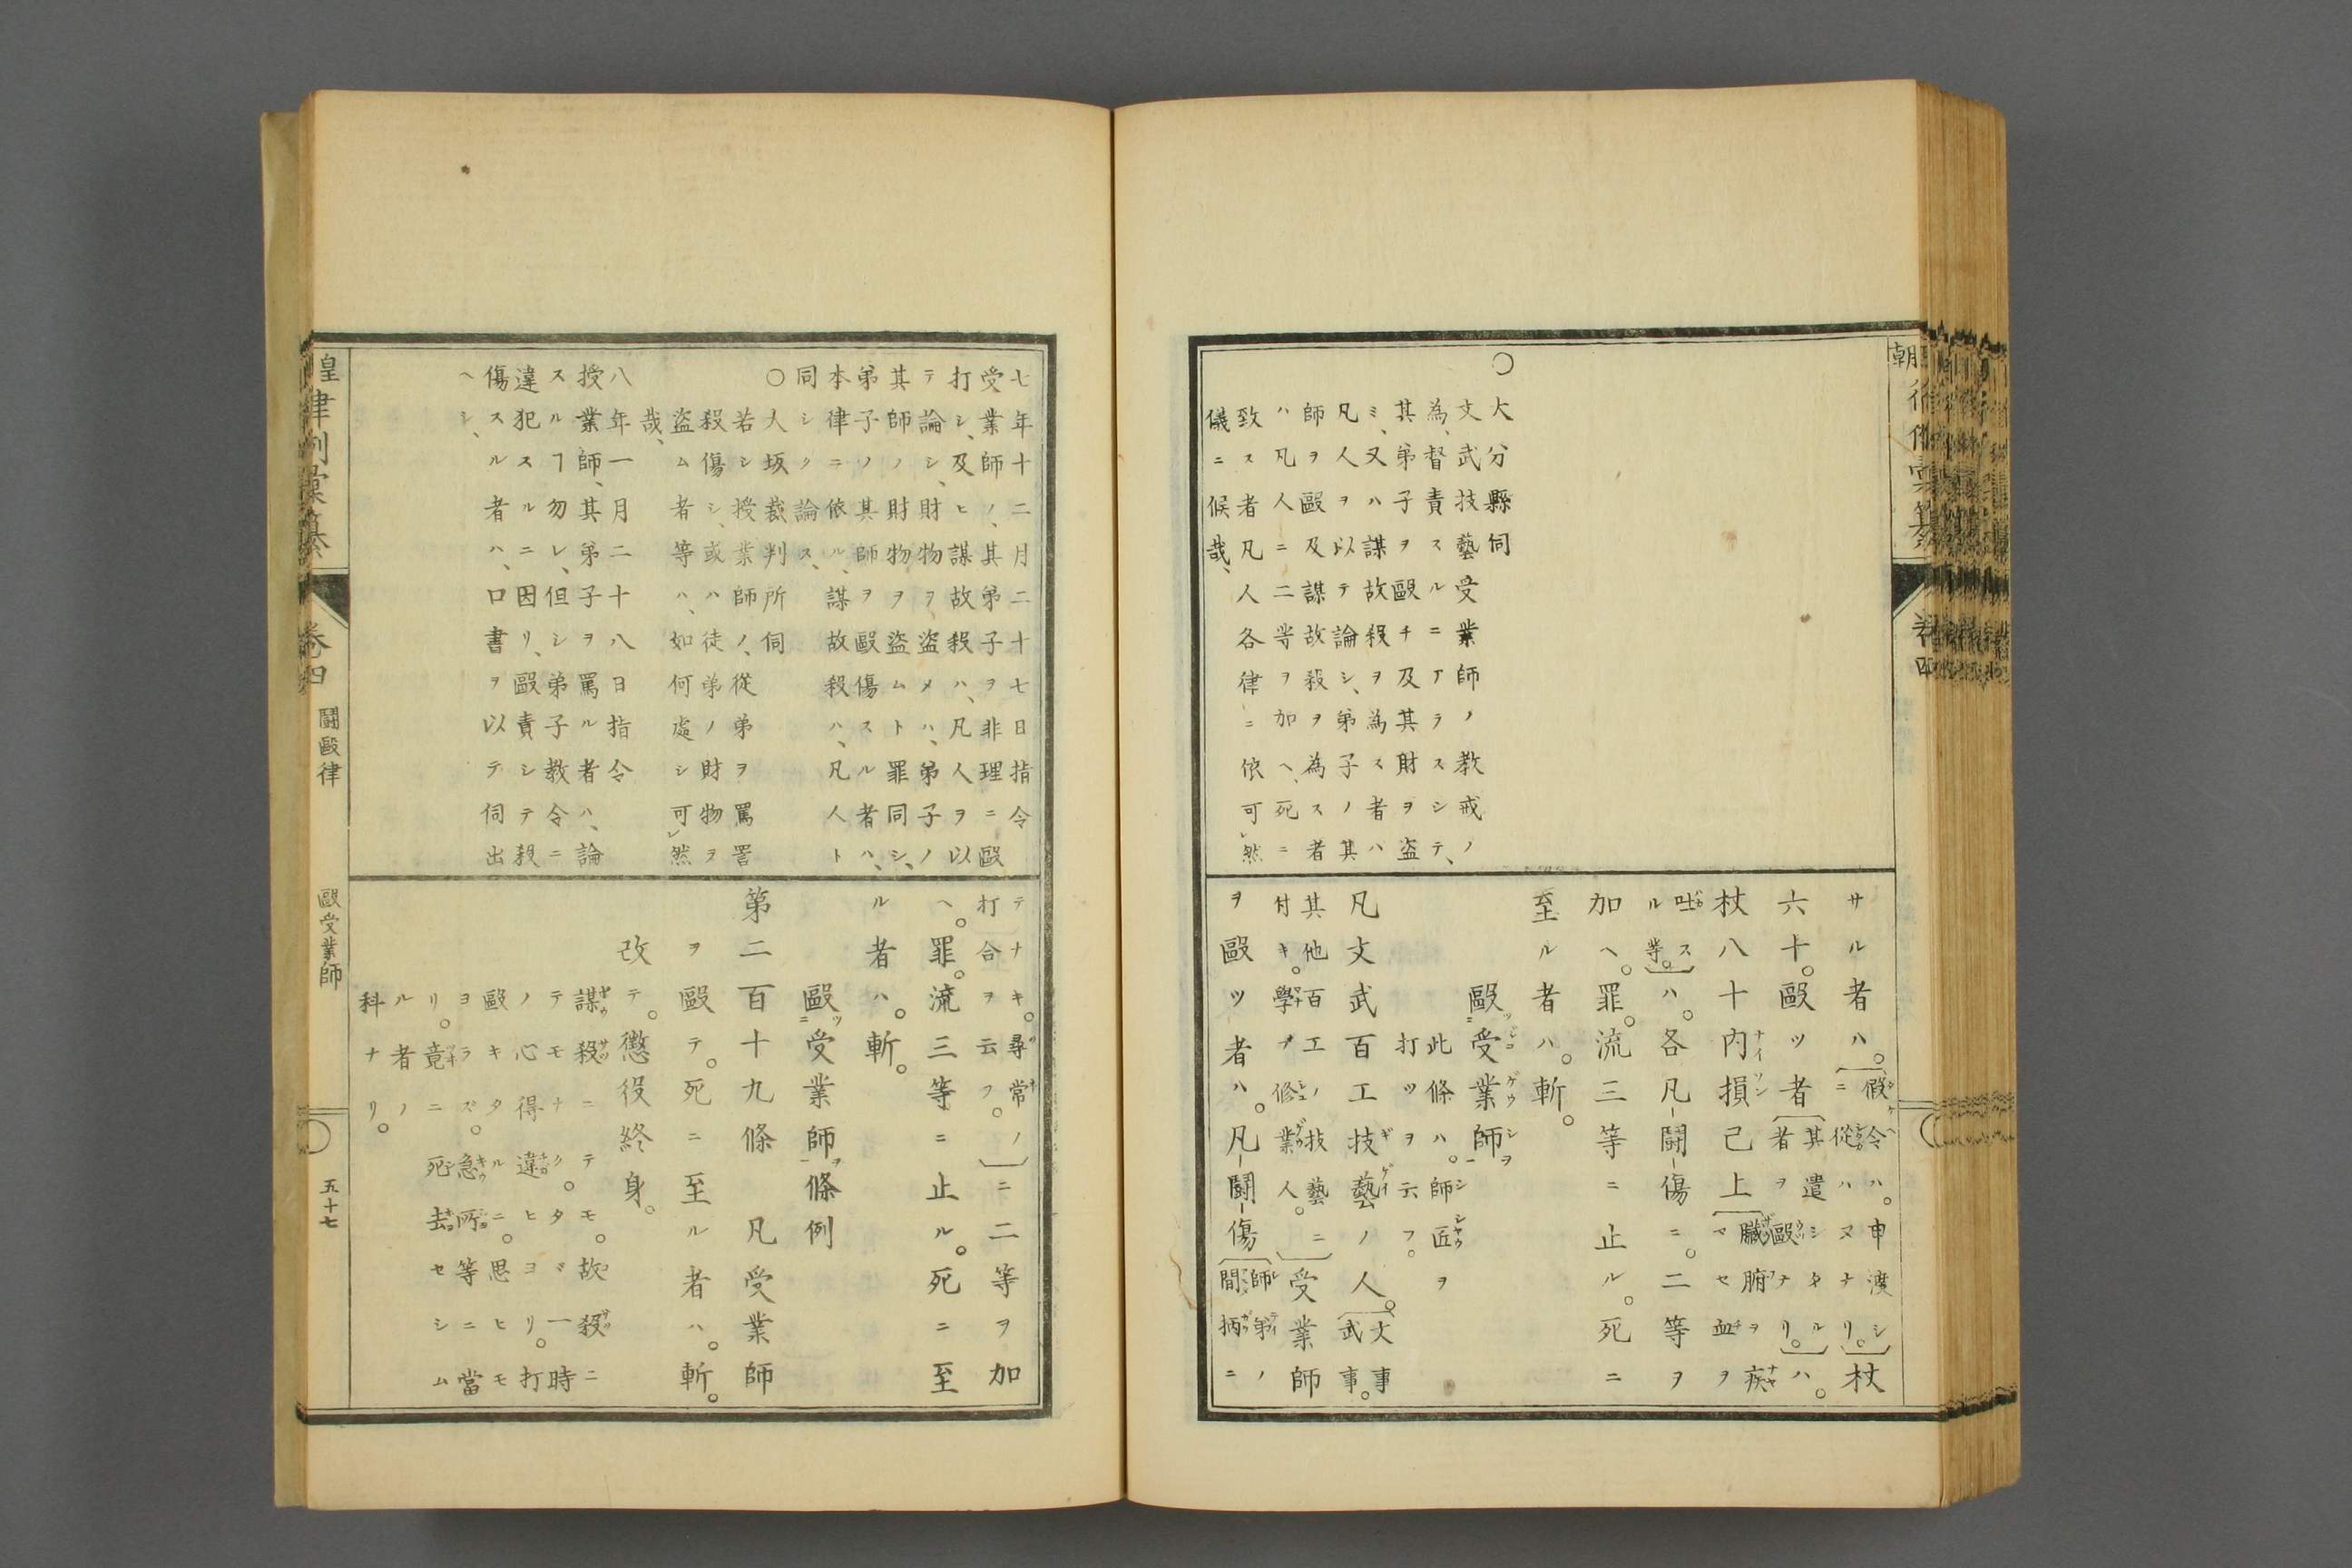 朝律例彙纂
卷四
○大分縣伺
文武技藝受業師ノ教戒ノ
為、督責スルニアラスシテ、
其弟子ヲ毆チ及其財ヲ盗
ミ、又ハ謀故殺ヲ為ス者ハ
凡人ヲ以テ論シ、弟子ノ其
師ヲ毆及謀故殺ヲ為ス者
ハ凡人ニ二等ヲ加ヘ、死ニ
致ス者凡人各律ニ依可レ然
儀ニ候哉、
サル者ハ。假令ハ。申渡シニ從ハヌナリ。杖
六十。毆ツ者其遣シタル者ヲ毆ナリ。ハ。
杖八十内損已上臓腑ヲ疾マセ血ヲ
吐スル等。ハ。各凡鬪傷ニ。二等ヲ
加ヘ。罪。流三等ニ止ル。死ニ
至ル者ハ。斬。
毆受業師
此條ハ。師匠ヲ
打ツヲ云フ。
凡文武百工技藝ノ人。文事武事。
其他百工ノ技藝ニ付キ。學ヲ修業人。受業師
ヲ毆ツ者ハ。凡鬪傷師弟ノ間柄ニ
七年十二月二十七日指令
受業師ノ、其弟子ヲ非理ニ毆
打シ、及ヒ謀故殺ハ、凡人ヲ以
テ論シ、財物ヲ盗メハ、弟子ノ
其師ノ財物ヲ盗ムト罪同シ、
弟子ノ其師ヲ毆傷スル者ハ、
本律ニ依ル、謀故殺ハ、凡人ト
同シク論ス、
○大坂裁判所伺
若シ授業師ノ、從弟ヲ罵詈
殺傷シ、或ハ徒弟ノ財物ヲ
盗ム者等ハ、如何處シ可レ然
哉、
八年一月二十八日指令
授業師、其弟子ヲ罵ル者ハ、論
スルヿ勿レ、但シ弟子教令ニ
違犯スルニ因リ、毆責シテ殺
傷スル者ハ、口書ヲ以テ伺出
ヘシ、
テナキ。尋常ノ打合ヲ云フ。ニ二等ヲ加
ヘ。罪。流三等ニ止ル。死ニ至
ル者ハ。斬。
毆受業師條例
第二百十九條 凡受業師
ヲ毆テ。死ニ至ル者ハ。斬。
改テ。懲役終身。
謀殺ニテモ。故殺ニ
テモナク。タヾ一時
ノ心得違ヒヨリ。打
毆キタルニ。思ヒモ
ヨラズ。急所等ニ當
リ。竟ニ死去セシム
ル者ノ
科ナリ。
皇律例彙纂 卷四 鬪毆律 毆受業師 五十七